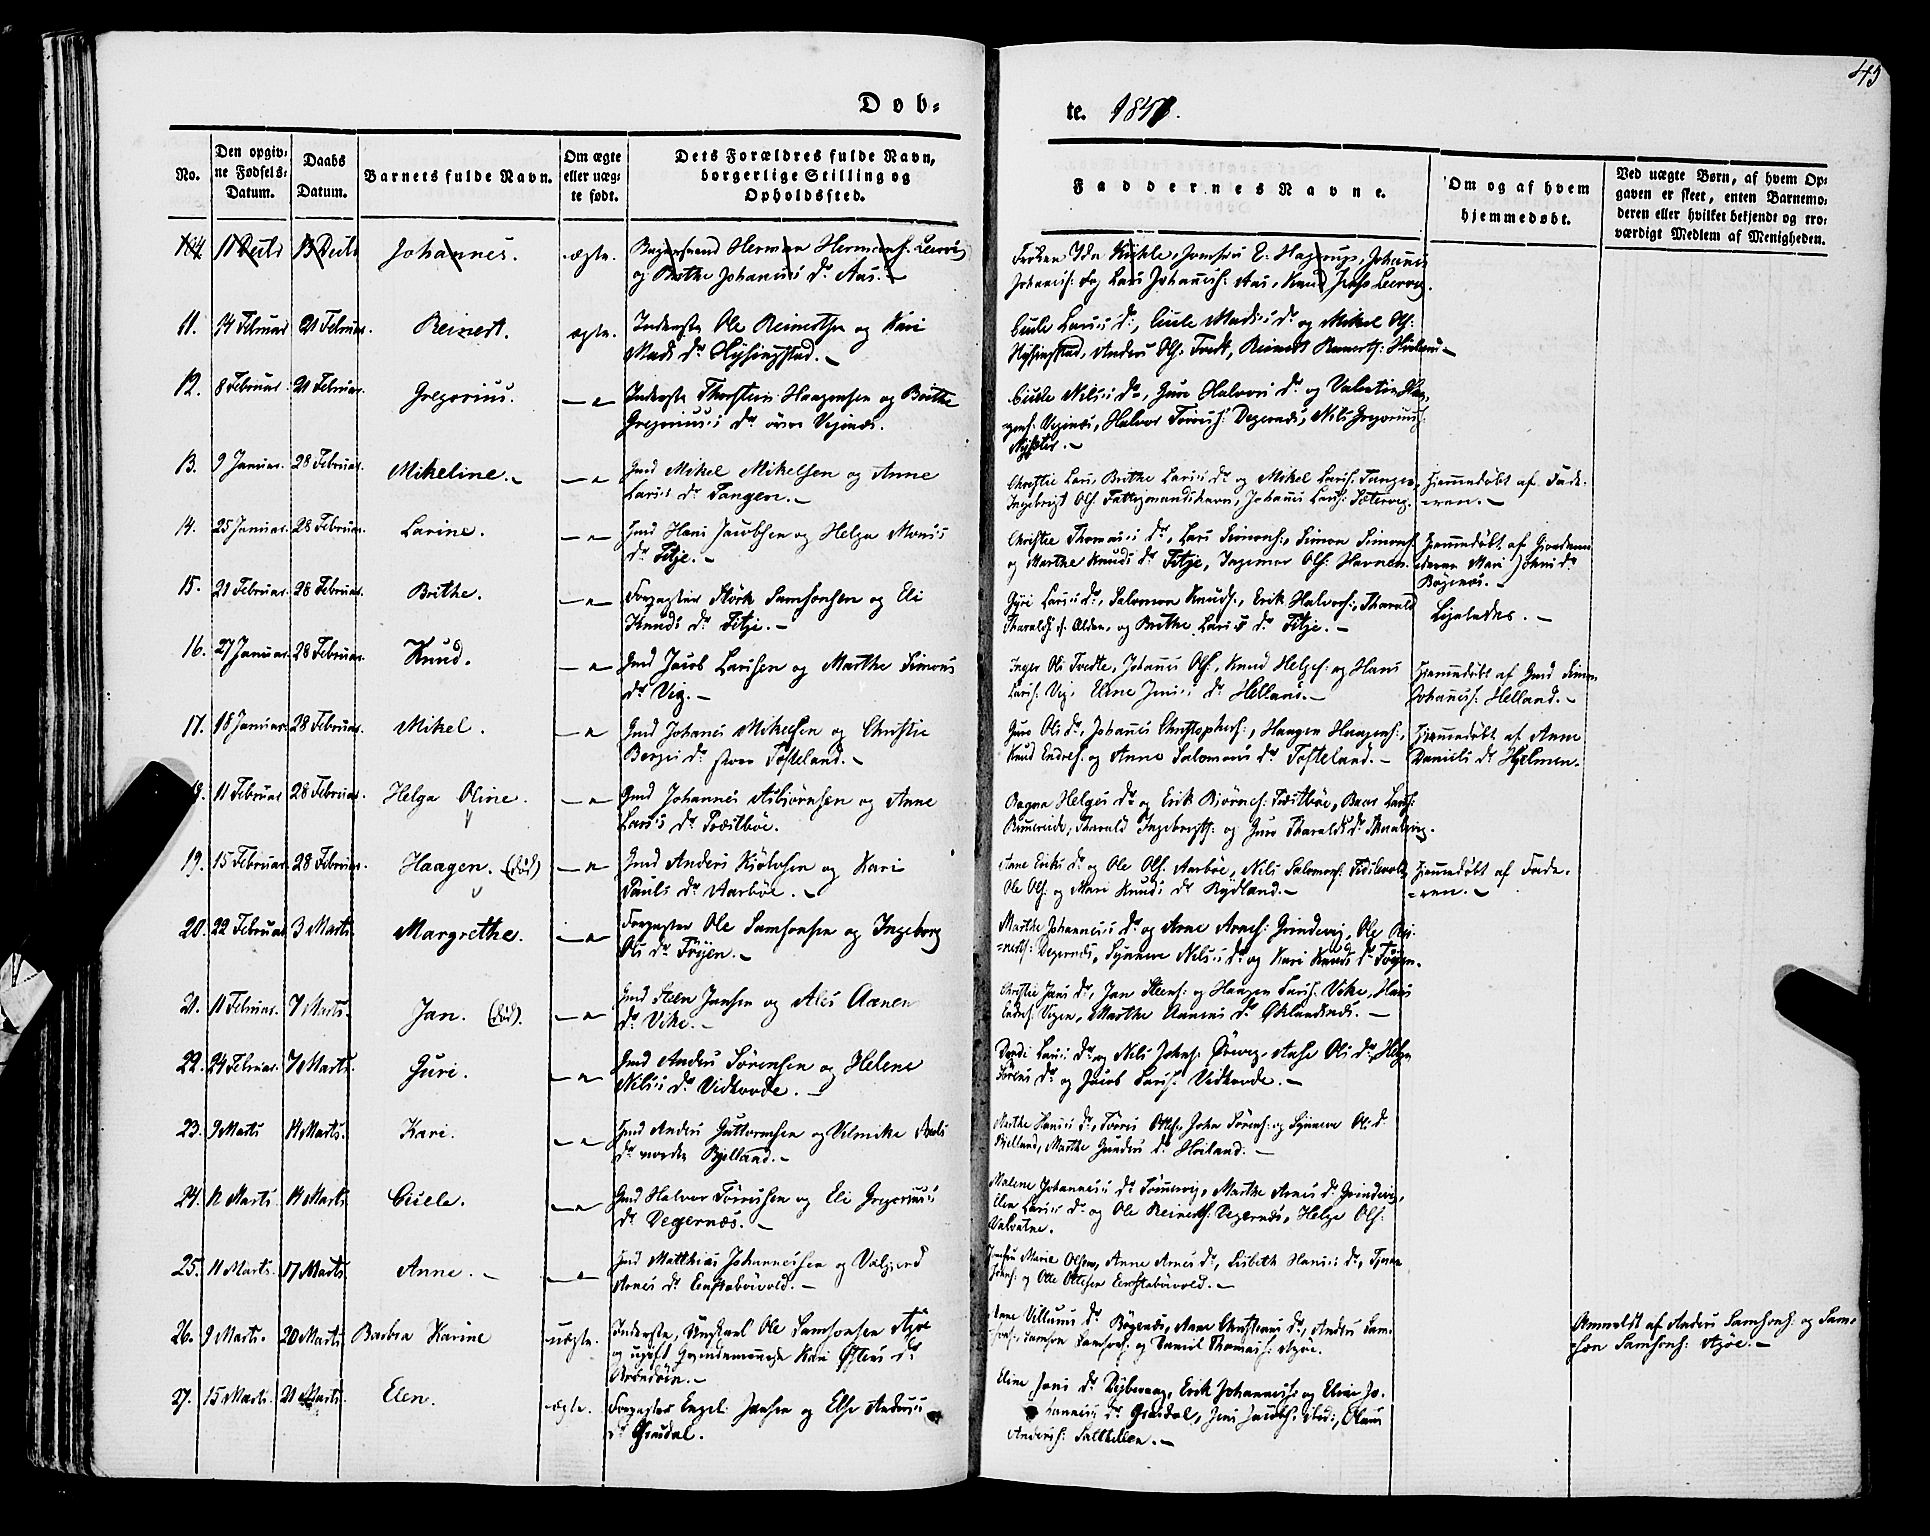 45
Døb-
te. 1841.
No.
Den opgiv-
ne Fødsels-
Datum.
Daabs
Datum.
Barnets fulde Navn.
Om ægte
eller uæg-
te født.
Dets Forældres fulde Navn,
borgerlige Stilling og
Opholdssted.
Faddernes Navne.
Om og af hvem
hjemmedøbt.
Ved uægte Børn, af hvem Op-
gaven er skeet, enten Barnemo-
deren eller hvilket bekjendt og tro-
værdigt Medlem af Menigheden.
Johannes. ægte. Herman Hermans. Leervig
og Brithe Johannis Dr Aas.
Johannes
Johannes. og Lars Johannes. Aas, Knud Leervig.
11. 14 Februar 21 Februar. Reinert. ægte. Inderste Ole Reinertsen og Kari
Mads Dr Hysingstad.
Cicele Larsis Dr, Cicele Madsis Dr og Mikel Ols:
Hysingstad, Anders Ols: Tvedt, Reinert Reinerts:
12. 8 Februar 21 Februar. Gregorius. Inderste Thorstein Haagensen og Brithe
Gregoriusis Dr Vejnæs.
Cicele Nilsis Dr, Guro Halvors Dr og Valentin Haa-
gens: Vejnæs, Halvor Tørris: Degernæs, Nils Gregorius:
13. 9 Januar. 28 Februar. Mikeline. Gmd Mikel Mikelsen og Anne
Larsis Dr Tangen.
Christie Lars, Brithe Larsis Dr og Mikel Lars: Tangen,
Ingebrigt Ols: Johannes Lars: Sætervig.
Hjemmedøbt af Fade-
ren.
14. 25 Januar. 28 Februar. Larine. Gmd Hans Jacobsen og Helga Monsis
Dr Fitje.
Christie Thomasis Dr, Lars Simons:, Simon Simons:
og Marthe Knuds Dr Fitje, Ingemar Ols: Havnen.
Hjemmedøbt af Gjordemo-
deren Mari
Bøgenæs.
15. 21 Februar. 28 Februar. Brithe. Forpagter Størk Samsonsen og Eli
Knuds Dr Fitje.
Gyri Larsis Dr, Salomon Knuds:, Erik Halvors:, Tharald
Tharalds: Alden, og Brithe Larsis Dr Fitje.
Ligeledes.
16. 27 Januar. 28 Februar. Knud. Gmd Jacob Larsen og Marthe Simons
Dr Vig.
Inger Ols Tvedte, Johannes Ols:, Knud Helges: og Hans
Lars: Vig, Eline Jensis Dr Helland.
Hjemmedøbt af Gmd Simon
Johannes: Helland.
17. 18 Januar. 28 Februar. Mikel. Gmd Johannes Mikelsen og Christie
Berges Dr store Tofteland.
Guro Ols Dr, Johannes Christophers:, Haagen Haagens:,
Knud Endres: og Anne Salomons Dr Tofteland.
Hjemmedøbt af Anne
Daniels Dr Hjelmen.
18. 11 Februar 28 Februar. Helga Oline. Gmd Johannes Asbjørnsen og Anne
Larsis Dr Prestbøe.
Ragna Helges Dr og Erik Bjørns: Prestbøe, Baar Lars:
Rimereide, Tharald Ingebrigts: og Guro Tharalds Dr
19. 15 Februar 28 Februar. Haagen. (død) Gmd Anders Kjølvsen og Kari
Pauls Dr Aarbøe.
Anne Eriks Dr og Ole Ols: Aarbøe, Nils Salomons:
Ole Ols: og Mari Knuds Dr Rydland.
Hjemmedøbt af Fade-
ren.
20. 22 Februar. 3 Marts. Margrethe. Forpagter Ole Samsonsen og Ingeborg
Ols Dr Tøyen.
Marthe Johannesis Dr og Arne Arnes: Grindevig, Ole Rei-
nerts: Degernæs, Synneve Nilsis Dr og Kari Knuds Dr Tøyen.
21. 11 Februar. 7 Marts. Jan. (død). Gmd Steen Jansen og Ales Aanen
Dr Vike.
Christie Jans Dr, Jan Steens: og Haagen Lars: Vike, Hans
Endres: Vigen, Marthe Aanens Dr Øklandsnæs.
22. 24 Februar. 7 Marts. Guri. Gmd Anders Sørensen og Helene
Nilsis Dr Vidkvode.
Dordi Larsis Dr og Nils Johns: Ørevig, Aase Ols Dr, Helge
Sørens Dr og Jacob Lars: Vidkvode.
23. 9 Marts 14 Marts. Kari. Gmd Anders Guttormsen og Velmike Pauls
Dr nordre Bjelland.
Marthe Hansis Dr, Tørris Ottes:, John Sørens: og Synneve Ols Dr
Bjelland, Marthe Gunders Dr Høiland.
24. 12 Marts 14 Marts. Cicele. Gmd Halvor Tørrissen og Eli Gregoriusis
Dr Degernæs.
Malene Johannesis Dr Sønnevig, Marthe Arnes Dr Grindevig,
Elen Larsis Dr og Ole Reinerts: Degernæs, Helge Ols:
Valvatne.
25. 11 Marts. 17 Marts. Anne. Gmd Matthias Johannessen og Valgjerd
Arnes Dr Lenstebøevold.
Jomfru Marie Olsen, Anne Arnes Dr, Lisbeth Hansis Dr,
Johns: og Otte Ottesen Lenstebøevold.
26. 9 Marts. 20 Marts. Barbra Karine uægte. Inderste, Ungkarl Ole Samsonsen Agøe
og ugift Qvindemenneske Kari Østens Dr
Anne Villums Dr Bøgenæs, Anne Christians Dr, Anders Sam-
sons:, Samson Samsons: og Daniel Thomas: Agøe.
Anmeldt af Anders Samsons: og Sam-
son Samsons: Agøe.
27. 15 Marts. 21 Marts. Elen. ægte. Forpagter Engel Jansen og Else Andersis
Dr Grasdal.
Eline Jans Dr Dybevaag, Erik Johannes: og Eline Jo-
hannesis Dr Grasdal, Jens Jacobs: sted:, Claus
Anders: